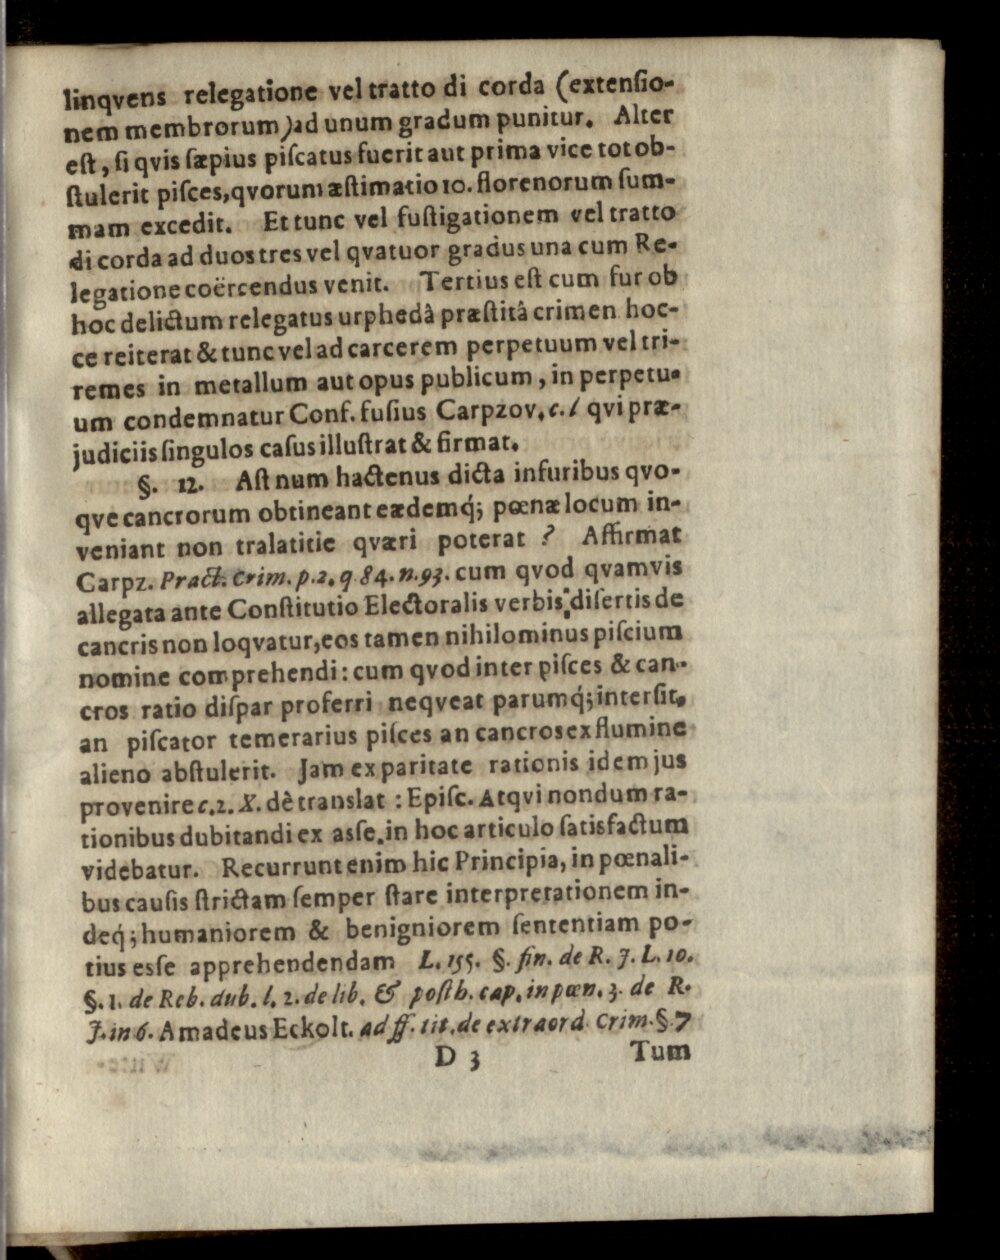 linqvens relegatione vel tratto di corda (extenſio-
nem membrorum) ad unum gradum punitur. Alter
eſt, ſi qvis ſæpius piſcatus fuerit aut prima vice tot ob-
ſtulerit piſces, qvorum æſtimatio 10. florenorum ſum-
mam excedit. Et tunc vel fuſtigationem vel tratto
di corda ad duos tres vel qvatuor gradus una cum Re-
legatione coërcendus venit. Tertius eſt cum fur ob
hoc delictum relegatus urphedâ præſtitâ crimen hoc-
ce reiterat & tunc vel ad carcerem perpetuum vel tri-
remes in metallum aut opus publicum, in perpetu-
um condemnatur Conf. fuſius Carpzov. c. l qvi præ-
judiciis ſingulos caſus illuſtrat & firmat.
§. 12. Aſt num hactenus dicta in furibus qvo-
qve cancrorum obtineant eædemq́; pœnæ locum in-
veniant non tralatitie qværi poterat ? Affirmat
Carpz. Pract. Crim. p. 2. q 84. n. 93. cum qvod qvamvis
allegata ante Conſtitutio Electoralis verbis diſertis de
cancris non loqvatur, eos tamen nihilominus piſcium
nomine comprehendi: cum qvod inter piſces & can-
cros ratio diſpar proferri neqveat parumq́; interſit,
an piſcator temerarius piſces an cancros ex flumine
alieno abſtulerit. Jam ex paritate rationis idem jus
provenire c. 2. X. dè translat : Epiſc. Atqvi nondum ra-
tionibus dubitandi ex aſſe, in hoc articulo ſatisfactum
videbatur. Recurrunt enim hic Principia, in pœnali-
bus cauſis ſtrictam ſemper ſtare interpretationem in-
deq́; humaniorem & benigniorem ſententiam po-
tius esſe apprehendendam L. 155. §. fin. de R. J. L. 10.
§. 1. de Reb. dub. l. 2. de lib. & poſth. cap. in pœn. 3. de R.
J. in 6. Amadeus Eckolt. ad ff. tit. de extraord. Crim. § 7
D 3 Tum